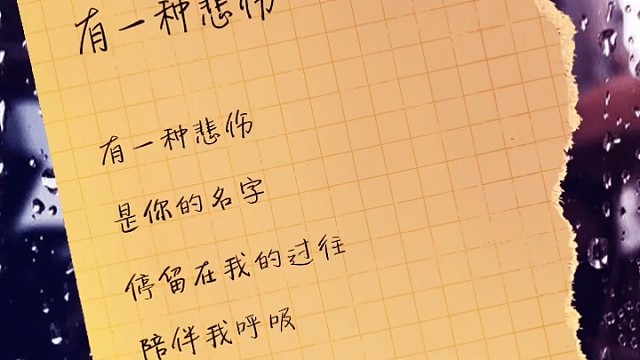 有一种悲伤
有一种悲伤
是你的名字
停留在我的过往
陪伴我呼吸